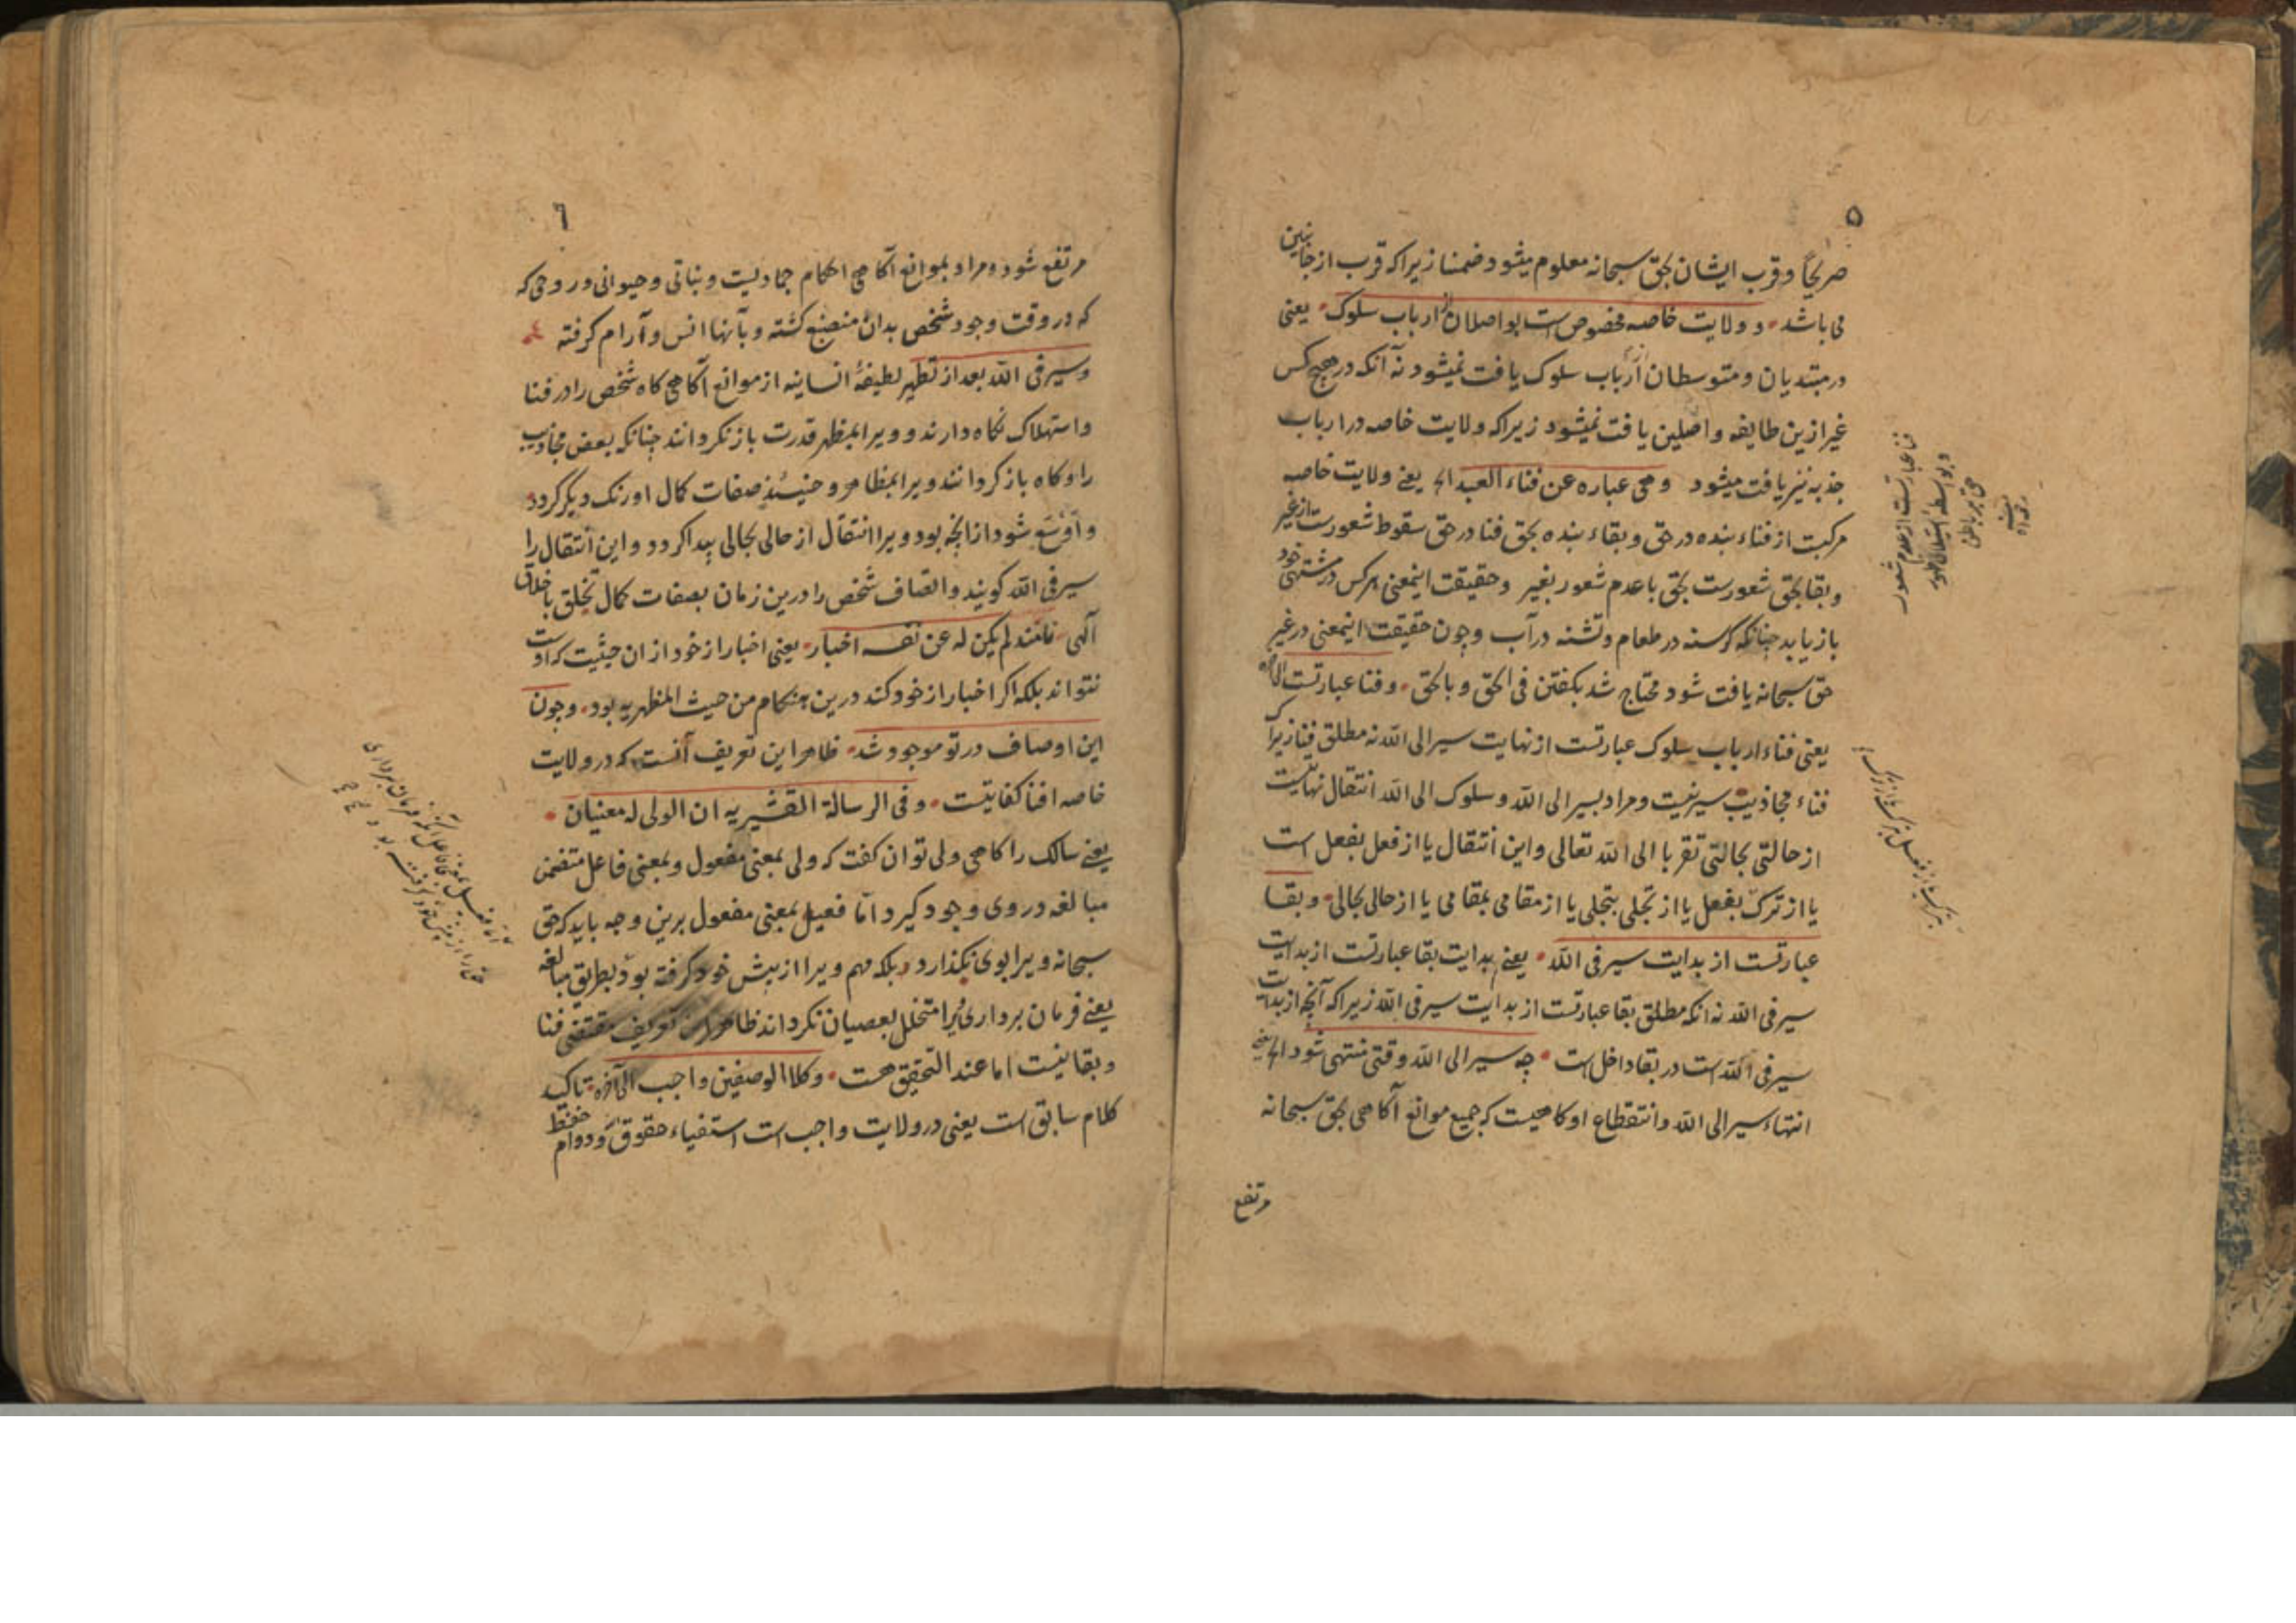 ۵
صریحًا و قرب ایشان بحق سبحانه معلوم میشود ضمنا زیرا که قرب از جانبین
می باشد و ولایت خاصه مخصوص است بواصلان از ارباب سلوک یعنی
در مبتدیان و متوسطان از ارباب سلوک یافت نمیشود نه آنکه در هیچ کس
غیر ازین طایفه واصلین یافت نمیشود زیرا که ولایت خاصه در ارباب
جذبه نیز یافت میشود وهی عباره عن فناء العبد الخ یعنی ولایت خاصه
مرکبت از فناء بنده در حق و بقاء بنده بحق فنا در حق سقوط شعورست از غیر
و بقا بحق شعورست بحق با عدم شعور بغیر و حقیقت اینمعنی هرکس در مشتهی خود
باز یابد چنانکه گرسنه در طعام و تشنه در آب و چون حقیقت اینمعنی در غیر
حق سبحانه یافت شود محتاج شد بگفتن فی الحق و بالحق و فنا عبارتست الی آخره
یعنی فناء ارباب سلوک عبارتست از نهایت سیر الی الله نه مطلق فنا زیرا که
فناء مجاذیب سیر نیست و مراد بسیر الی الله و سلوک الی الله انتقال نهایتست
از حالتی بحالتی تقربا الی الله تعالی و این انتقال یا از فعل بفعل است
یا از ترک بفعل یا از تجلی بتجلی یا از مقامی بمقامی یا از حالی بحالی و بقا
عبارتست از بدایت سیر فی الله یعنی بدایت بقا عبارتست از بدایت
سیر فی الله نه انکه مطلق بقا عبارتست از بدایت سیر فی الله زیرا که آنچه از بدایت
سیر فی الله است در بقا داخل است چه سیر الی الله وقتی منتهی شود الخ یعنی
انتهاء سیر الی الله و انتقطاع او کاهیست که جمیع موانع آکاهی بحق سبحانه
مرتفع
فنا عبارتست از عدم شعور
و بواسطه استیلاء ظهور
۶
مرتفع شود و مراد بموانع آکاهی احکام جمادیت و نباتی و حیوانی و روحی که
که در وقت وجود شخص بدان منصبغ کشته و بآنها انس و آرام کرفته
و سیر فی الله بعد از تطهر لطیفهٔ انسانیه از موانع آکاهی کاه شخص را در فنا
و استهلاک نکاه دارند و ویرا بمظهر قدرت باز نکردانند چنانکه بعض مجاذیب
را و کاه باز کردانند ویرا بمظاهر و حینئذ صفات کمال او رنک دیکر کردد
و اوسع شود از انچه بود و ویرا انتقال از حالی بحالی پیدا کردد و این انتقال را
سیر فی الله کویند و اتصاف شخص را درین زمان بصفات کمال تخلق باخلاق
آلهی نامند لم یکن له عن نفسه اخبار یعنی اخبار از خود از ان حیثیت که اوست
نتواند بلکه اکر اخبار از خود کند درین هنکام من حیث المظهریه بود و چون
این اوصاف در تو موجود شد ظاهر این تعریف آنست که در ولایت
خاصه افنا کفایتست و فی الرسالة القشیریه ان الولی له معنیان
یعنی سالک را کاهی ولی توان کفت که ولی بمعنی مفعول و بمعنی فاعل متضمن
مبالغه در وی وجود کیرد امّا فعیل بمعنی مفعول برین وجه باید که حق
سبحانه ویرا بوی نکذارد بلکه مهم ویرا از پیش خود کرفته بود بطریق مبالغه
یعنی فرمان برداری را متخلل بعصیان نکرداند ظاهر این تعریف مقتضی فنا
و بقا نیست اما عند التحقیق هست و کلا الوصفین واجب الی آخره تاکید
کلام سابق است یعنی در ولایت واجب است استفیاء حقوق و دوام حفظ